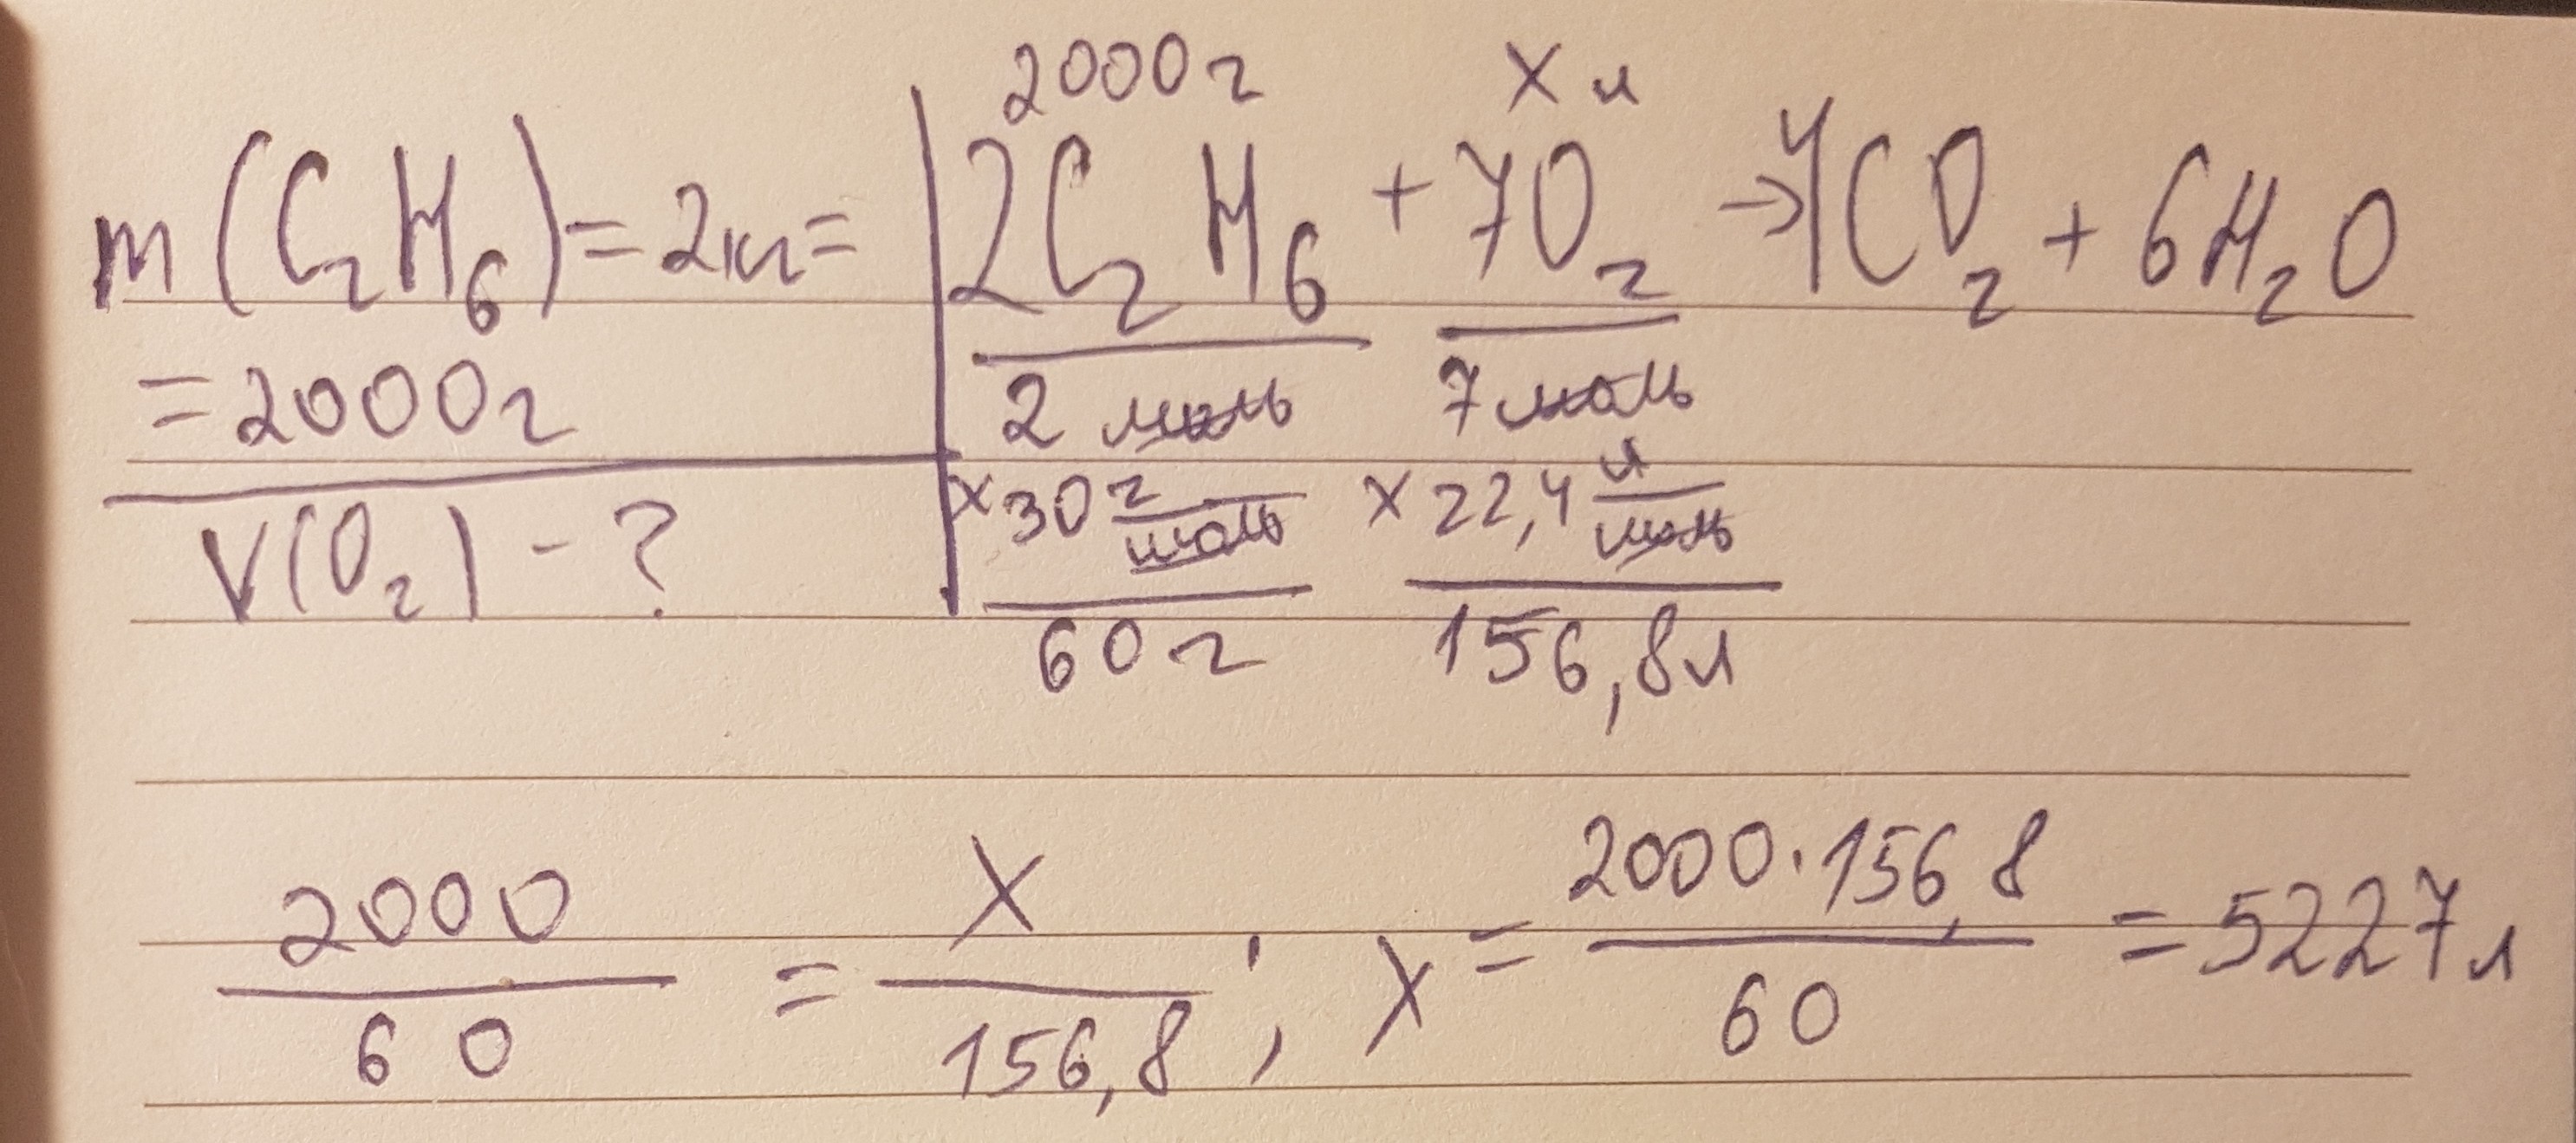 m(C₂H₆) = 2кг =
= 2000г
V(O₂) - ?
2000г x л
2C₂H₆ + 7O₂ → 4CO₂ + 6H₂O
2 моль 7 моль
×30 г/моль ×22,4 л/моль
60г 156,8л
2000/60 = X/156,8 ; X = 2000·156,8/60 = 5227л